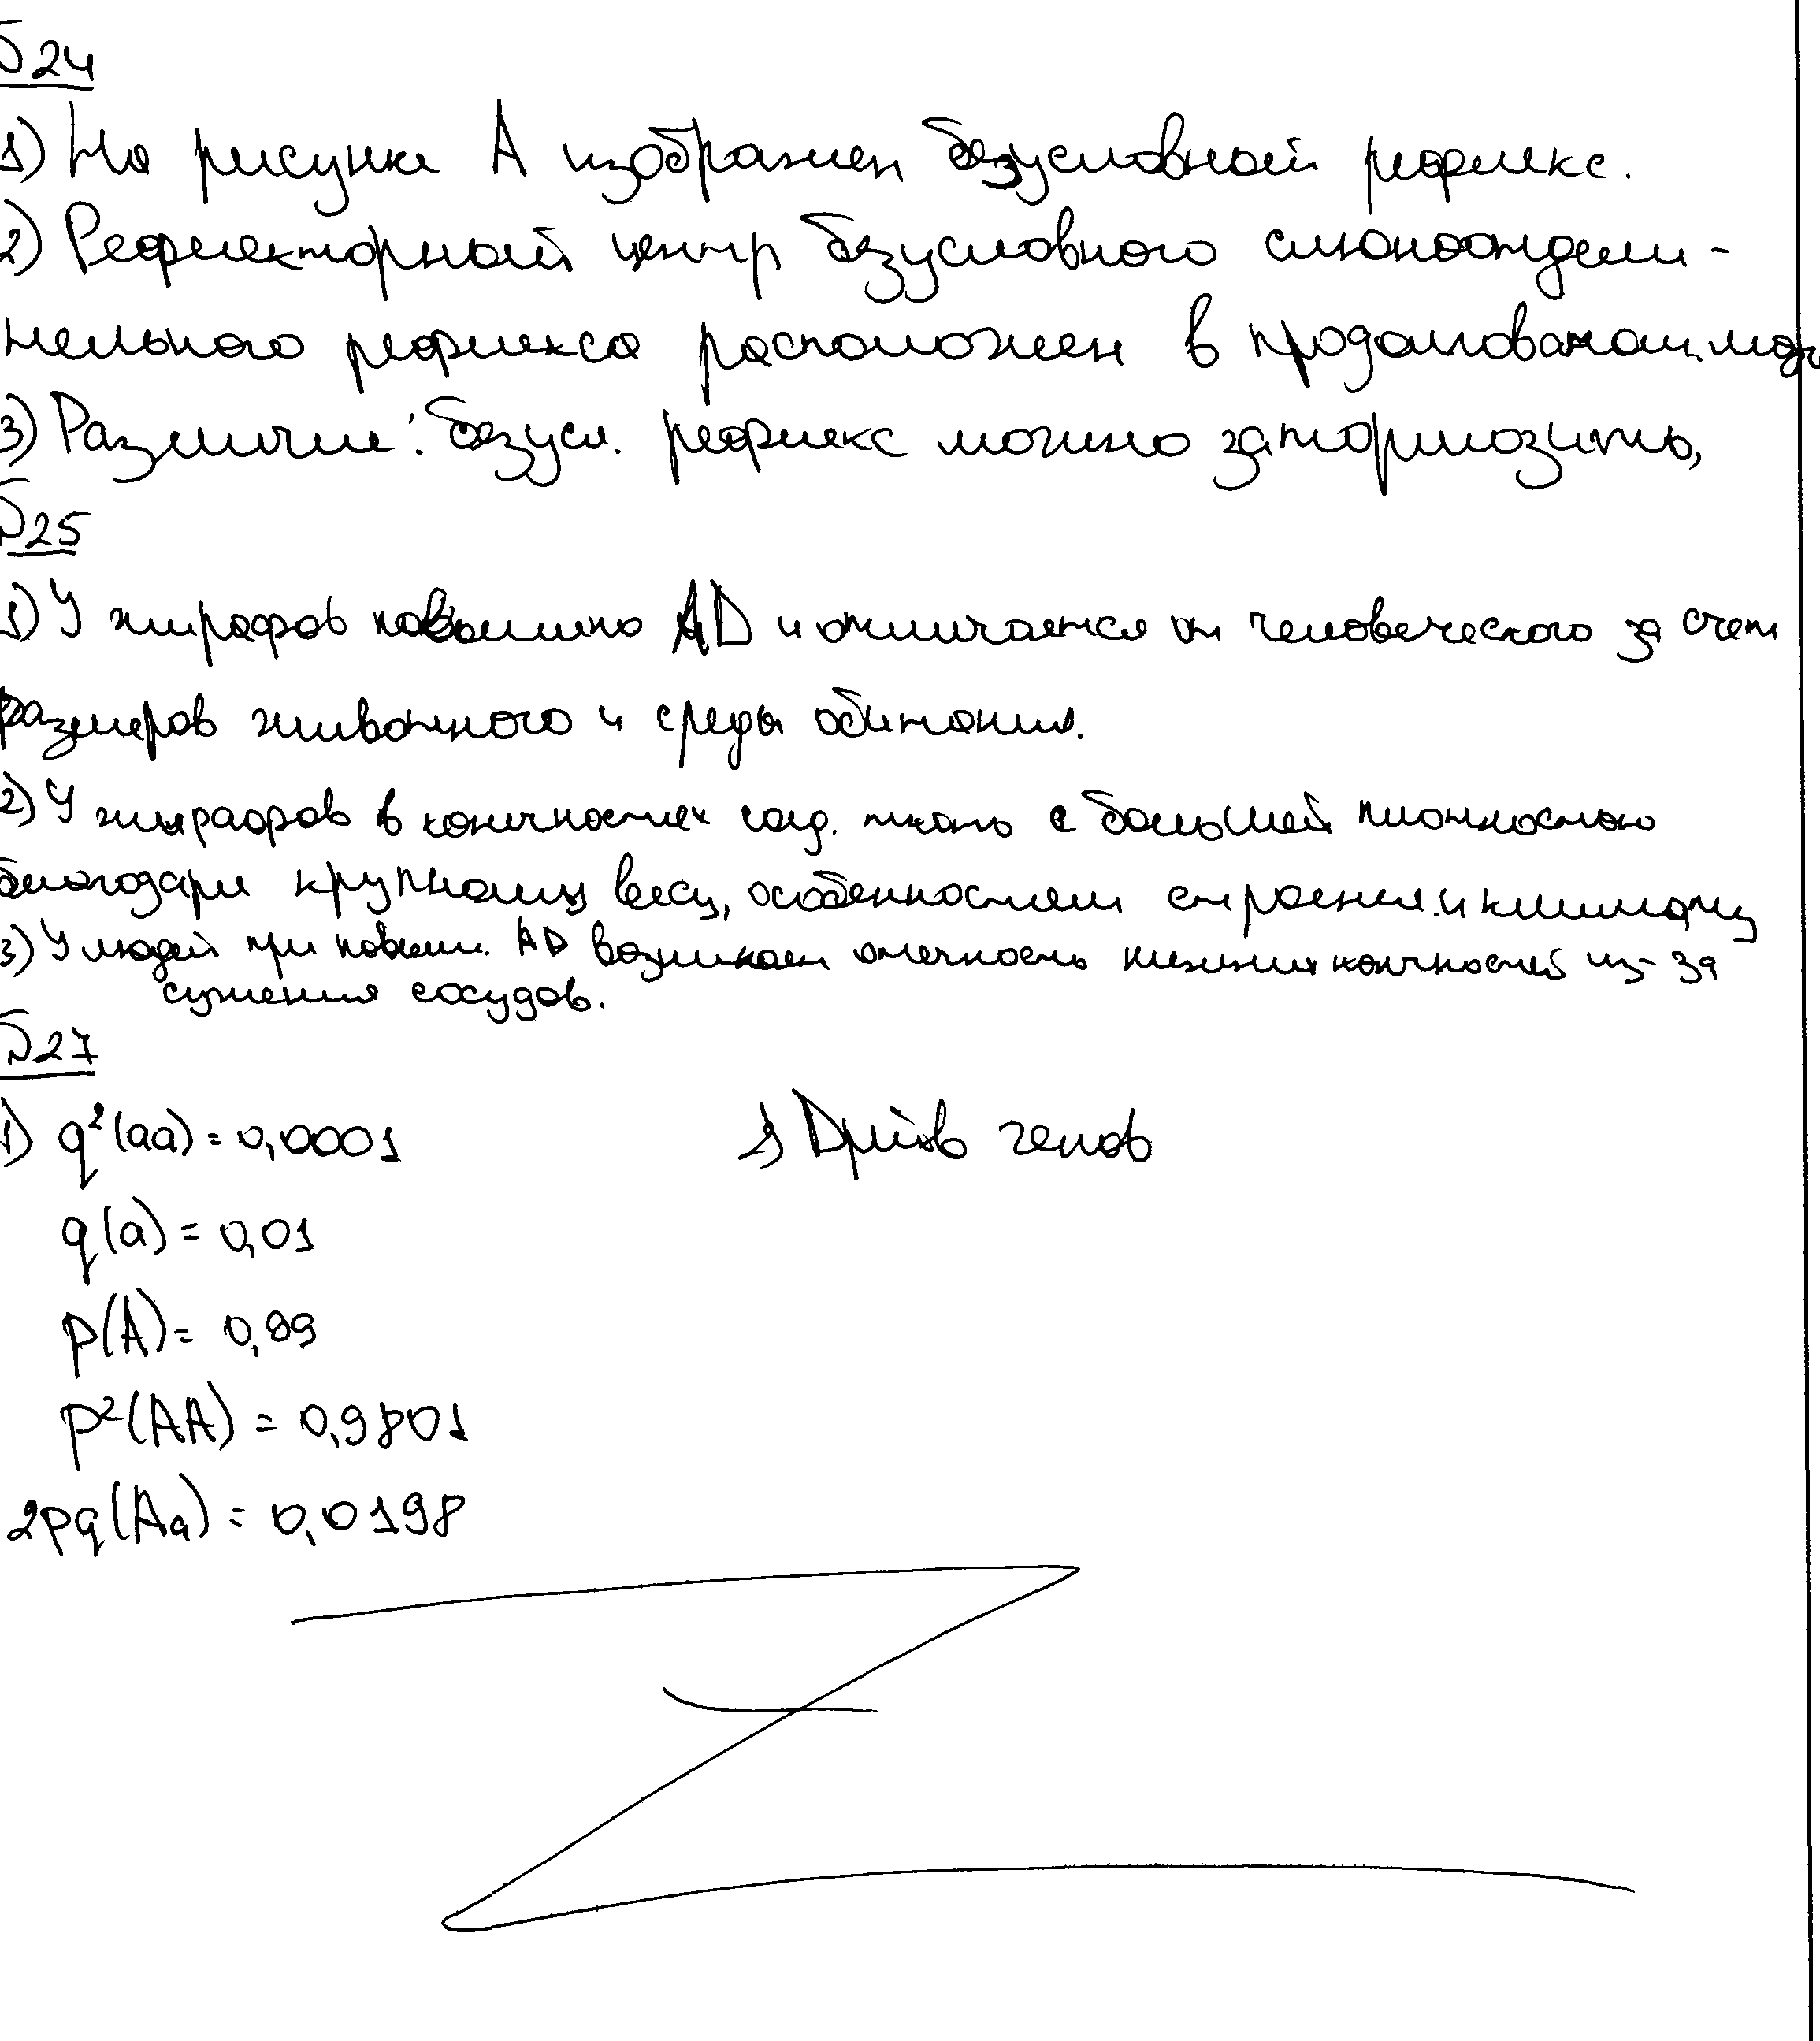 №24
1) На рисунке А изображен безусловный рефлекс.
2) Рефлекторный центр безусловного слюноотдели-
тельного рефлекса расположен в продолговатом моз
3) Различие: безусл. рефлекс можно затормозить,
№25
1) У жирафов повышено АД и отличается от человеческого за счет
размеров животного и среды обитания.
2) У жирафов в конечностях соед. ткань с большей плотностью
благодаря крупному весу, особенностям строения и климату
3) У людей при повыш. АД возникает отечность нижних конечностей из-за
сужения сосудов.
№27
1) q²(aa) = 0,0001
2) Дрейв генов
q(a) = 0,01
p(A) = 0,99
p²(AA) = 0,9801
2pq(Aa) = 0,0198